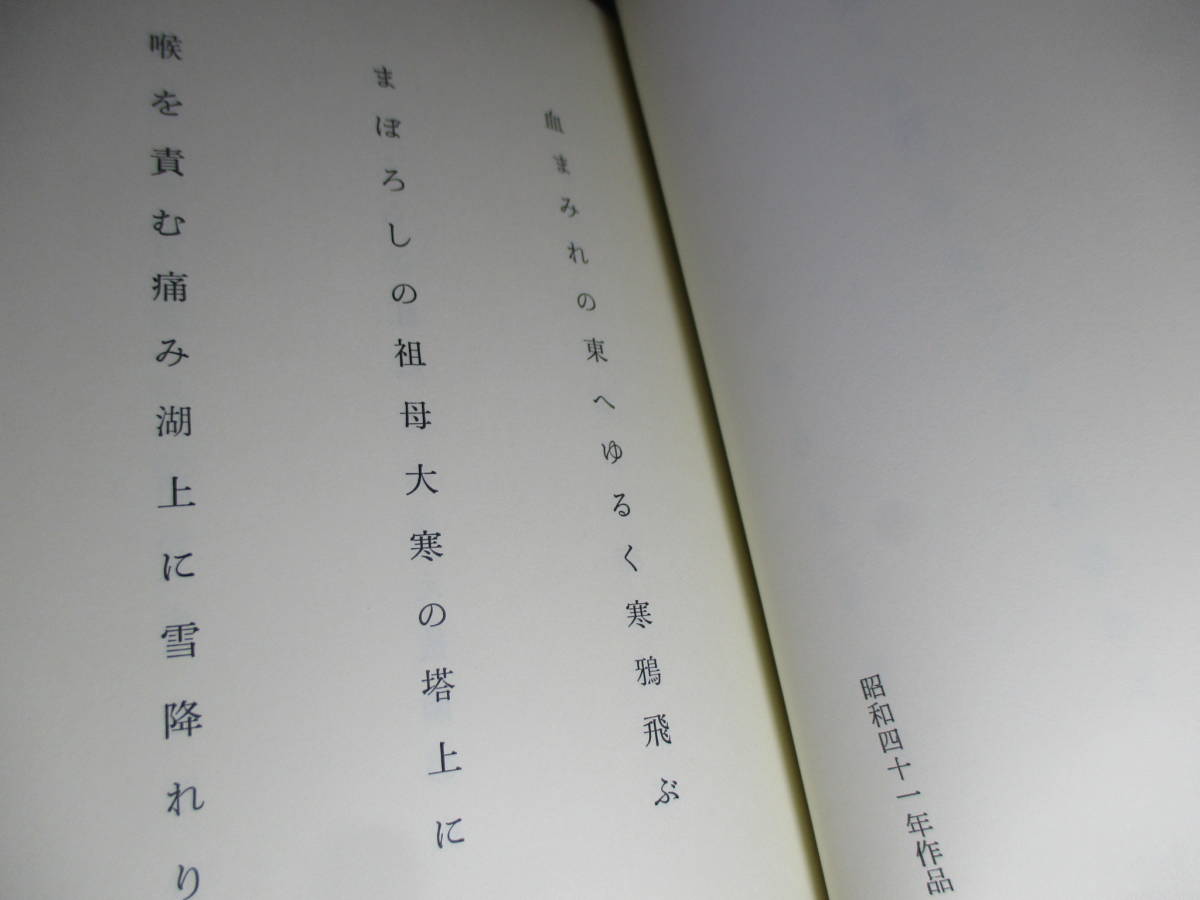 昭和四十一年作品
血まみれの東へゆるく寒鴉飛ぶ
まぼろしの祖母大寒の塔上に
喉を責む痛み湖上に雪降れり